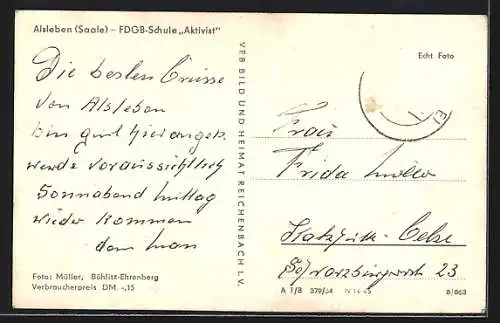 Alsleben (Saale) – FDGB-Schule „Aktivist"
Die besten Grüsse
von Alsleben
bin gut hier angek.
werde voraussichtlich
Sonnabend Mittag
wieder kommen
dein Man
Foto: Müller, Böhlitz-Ehrenberg
Verbraucherpreis DM -,15
VEB BILD UND HEIMAT REICHENBACH I. V.
Echt Foto
Frau
Frida
23
A 1/B 379/54 IV 14 45
8/663